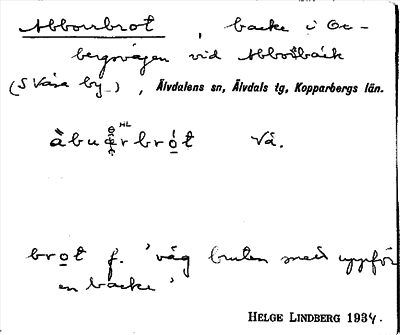 Abborrbrot, backe i Ot-
bergsvägen vid Abborrbäck
(S Våsa by.), Älvdalens sn, Älvdals tg, Kopparbergs län.
Vå.
brot f. 'väg bruten med uppför
en backe'
HELGE LINDBERG 1934.